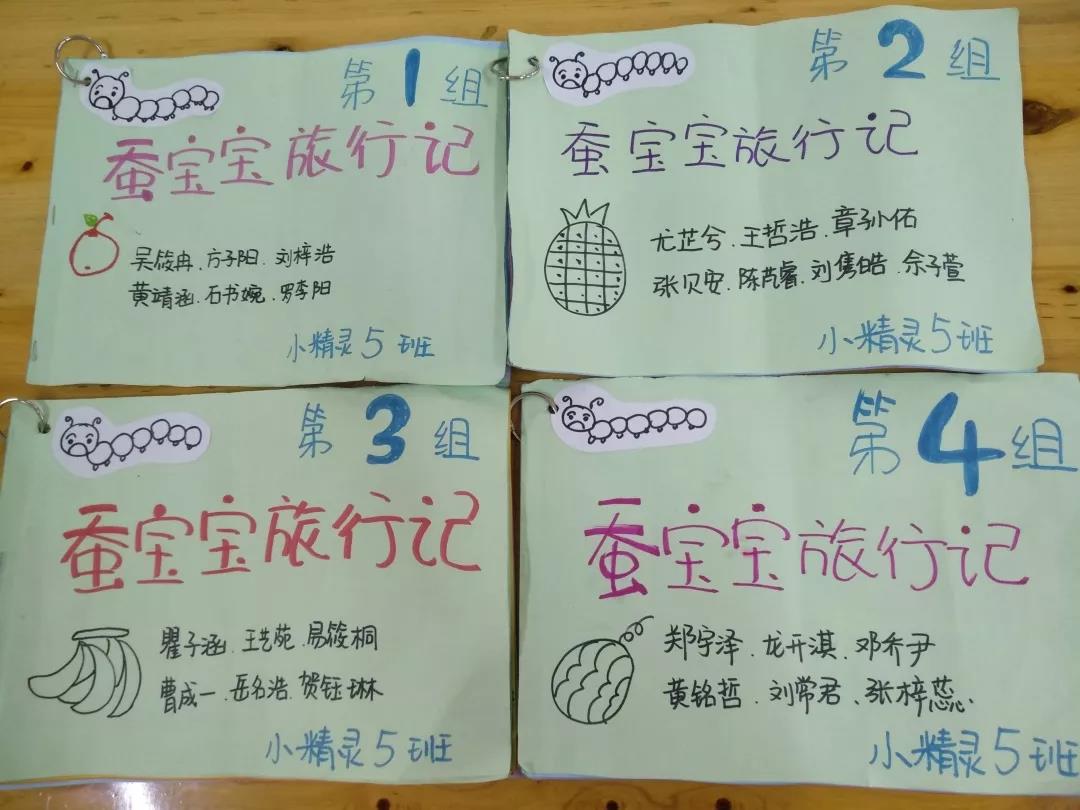 第1组
蚕宝宝旅行记
吴筱冉、方子阳、刘梓浩
黄靖涵、石书婉、罗李阳
小精灵5班
第2组
蚕宝宝旅行记
尤芷兮、王哲浩、章孙佑
张贝安、陈芃睿、刘隽皓、佘子萱
小精灵5班
第3组
蚕宝宝旅行记
瞿子涵、王艺苑、易筱桐
曹成一、岳名浩、贺钰琳
小精灵5班
第4组
蚕宝宝旅行记
郑宇泽、龙开淇、邓乔尹
黄铭哲、刘常君、张梓蕊、
小精灵5班